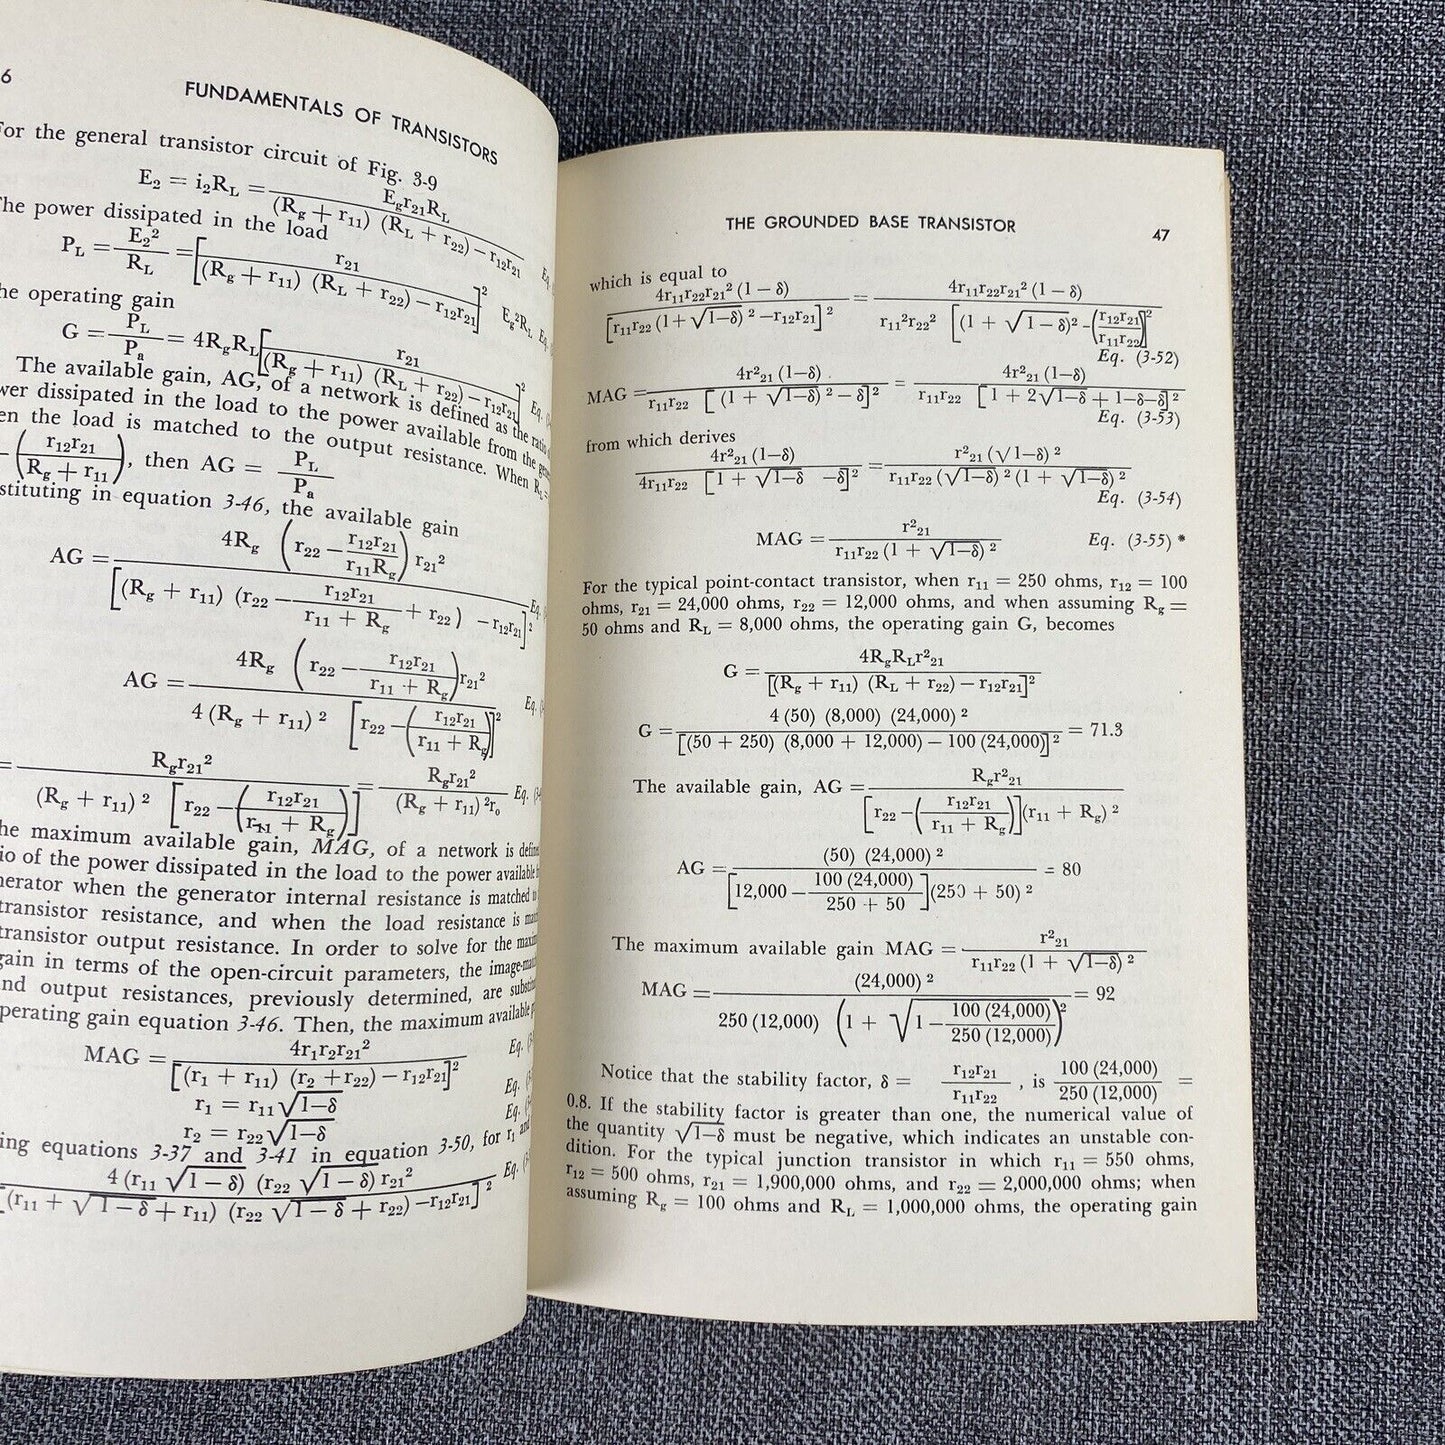 6
FUNDAMENTALS OF TRANSISTORS
For the general transistor circuit of Fig. 3-9
E₂ = i₂R_L = E_g r₂₁R_L / (R_g + r₁₁) (R_L + r₂₂) – r₁₂r₂₁
The power dissipated in the load
P_L = E₂² / R_L = [r₂₁ / (R_g + r₁₁) (R_L + r₂₂) – r₁₂r₂₁]² E_g²R_L Eq.
the operating gain
G = P_L / P_a = 4R_gR_L [r₂₁ / (R_g + r₁₁) (R_L + r₂₂) – r₁₂r₂₁]² Eq.
The available gain, AG, of a network is defined as the ratio
dissipated in the load to the power available from the
the load is matched to the output resistance. When
– (r₁₂r₂₁ / R_g + r₁₁), then AG = P_L / P_a
stituting in equation 3-46, the available gain
AG = 4R_g (r₂₂ – r₁₂r₂₁ / r₁₁R_g) r₂₁² / [(R_g + r₁₁) (r₂₂ – r₁₂r₂₁ / r₁₁ + R_g + r₂₂) – r₁₂r₂₁]² Eq.
AG = 4R_g (r₂₂ – r₁₂r₂₁ / r₁₁ + R_g) r₂₁² / 4 (R_g + r₁₁) ² [r₂₂ – (r₁₂r₂₁ / r₁₁ + R_g)]² Eq.
= R_g r₂₁² / (R_g + r₁₁) ² [r₂₂ – (r₁₂r₂₁ / r₁₁ + R_g)] = R_g r₂₁² / (R_g + r₁₁) ²r₀ Eq.
he maximum available gain, MAG, of a network is
io of the power dissipated in the load to the power available
nerator when the generator internal resistance is matched
transistor resistance, and when the load resistance is
transistor output resistance. In order to solve for the
gain in terms of the open-circuit parameters, the
nd output resistances, previously determined, are
perating gain equation 3-46. Then, the maximum available
MAG = 4r₁r₂r₂₁² / [(r₁ + r₁₁) (r₂ + r₂₂) – r₁₂r₂₁]² Eq.
r₁ = r₁₁√1–δ Eq.
r₂ = r₂₂√1–δ Eq.
ing equations 3-37 and 3-41 in equation 3-50, for r₁ and
4 (r₁₁ √1 – δ) (r₂₂ √1 – δ) r₂₁² / [(r₁₁ + √1 – δ + r₁₁) (r₂₂ √1 – δ + r₂₂) – r₁₂r₂₁] ² Eq.
THE GROUNDED BASE TRANSISTOR 47
which is equal to
4r₁₁r₂₂r₂₁² (1 – δ) / [r₁₁r₂₂ (1 + √1–δ) ² – r₁₂r₂₁] ² = 4r₁₁r₂₂r₂₁² (1 – δ) / r₁₁²r₂₂² [(1 + √1 – δ)² – (r₁₂r₂₁ / r₁₁r₂₂)]²
Eq. (3-52)
MAG = 4r²₂₁ (1–δ) / r₁₁r₂₂ [(1 + √1–δ) ² – δ]² = 4r²₂₁ (1–δ) / r₁₁r₂₂ [1 + 2√1–δ + 1–δ–δ] ²
Eq. (3-53)
from which derives
4r²₂₁ (1–δ) / 4r₁₁r₂₂ [1 + √1–δ –δ]² = r²₂₁ (√1–δ) ² / r₁₁r₂₂ (√1–δ) ² (1 + √1–δ) ²
Eq. (3-54)
MAG = r²₂₁ / r₁₁r₂₂ (1 + √1–δ) ² Eq. (3-55) *
For the typical point-contact transistor, when r₁₁ = 250 ohms, r₁₂ = 100
ohms, r₂₁ = 24,000 ohms, r₂₂ = 12,000 ohms, and when assuming R_g =
50 ohms and R_L = 8,000 ohms, the operating gain G, becomes
G = 4R_gR_Lr²₂₁ / [(R_g + r₁₁) (R_L + r₂₂) – r₁₂r₂₁]²
G = 4 (50) (8,000) (24,000) ² / [(50 + 250) (8,000 + 12,000) – 100 (24,000)] ² = 71.3
The available gain, AG = R_g r²₂₁ / [r₂₂ – (r₁₂r₂₁ / r₁₁ + R_g)] (r₁₁ + R_g) ²
AG = (50) (24,000) ² / [12,000 – 100 (24,000) / 250 + 50] (250 + 50) ² = 80
The maximum available gain MAG = r²₂₁ / r₁₁r₂₂ (1 + √1–δ) ²
MAG = (24,000) ² / 250 (12,000) (1 + √1 – 100 (24,000) / 250 (12,000))² = 92
Notice that the stability factor, δ = r₁₂r₂₁ / r₁₁r₂₂ , is 100 (24,000) / 250 (12,000) =
0.8. If the stability factor is greater than one, the numerical value of
the quantity √1–δ must be negative, which indicates an unstable con-
dition. For the typical junction transistor in which r₁₁ = 550 ohms,
r₁₂ = 500 ohms, r₂₁ = 1,900,000 ohms, and r₂₂ = 2,000,000 ohms; when
assuming R_g = 100 ohms and R_L = 1,000,000 ohms, the operating gain